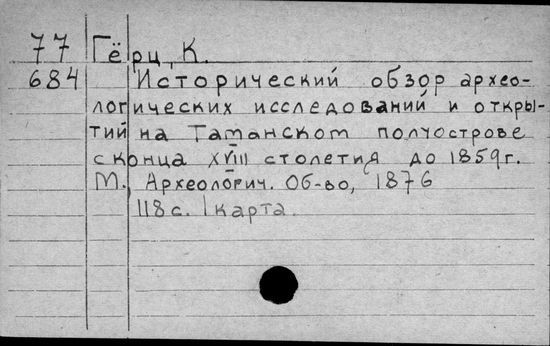 77 Гёрц, К.
684 Исторический обзор архео-
логических исследований и откры-
тий на Таманском полуострове
с конца XVIII столетия до 1859г.
М., Археологич. Об-во, 1876
118 с. 1 карта.